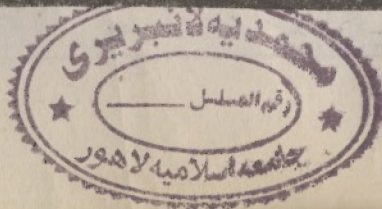 محمدیہ لائبریری
رقم المسلسل
جامعہ اسلامیہ لاهور